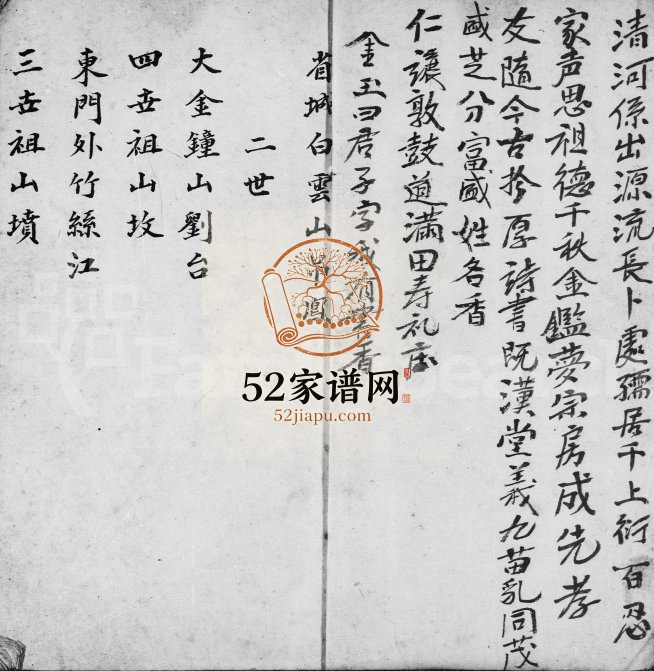 清河係出源流長卜處孺居千上衍百忍
家声思祖德千秋金鑑夢宗房成先孝
友隨今古拎厚詩書既漢堂義九苗乳同茂
盛芝分富盛姓各香
仁讓敦鼓道滿田寿礼
金玉曰君子字
省城白雲山
鳳
二世
大金鐘山劉台
四世祖山坟
東門外竹絲江
三世祖山墳
52家谱网
52jiapu.com